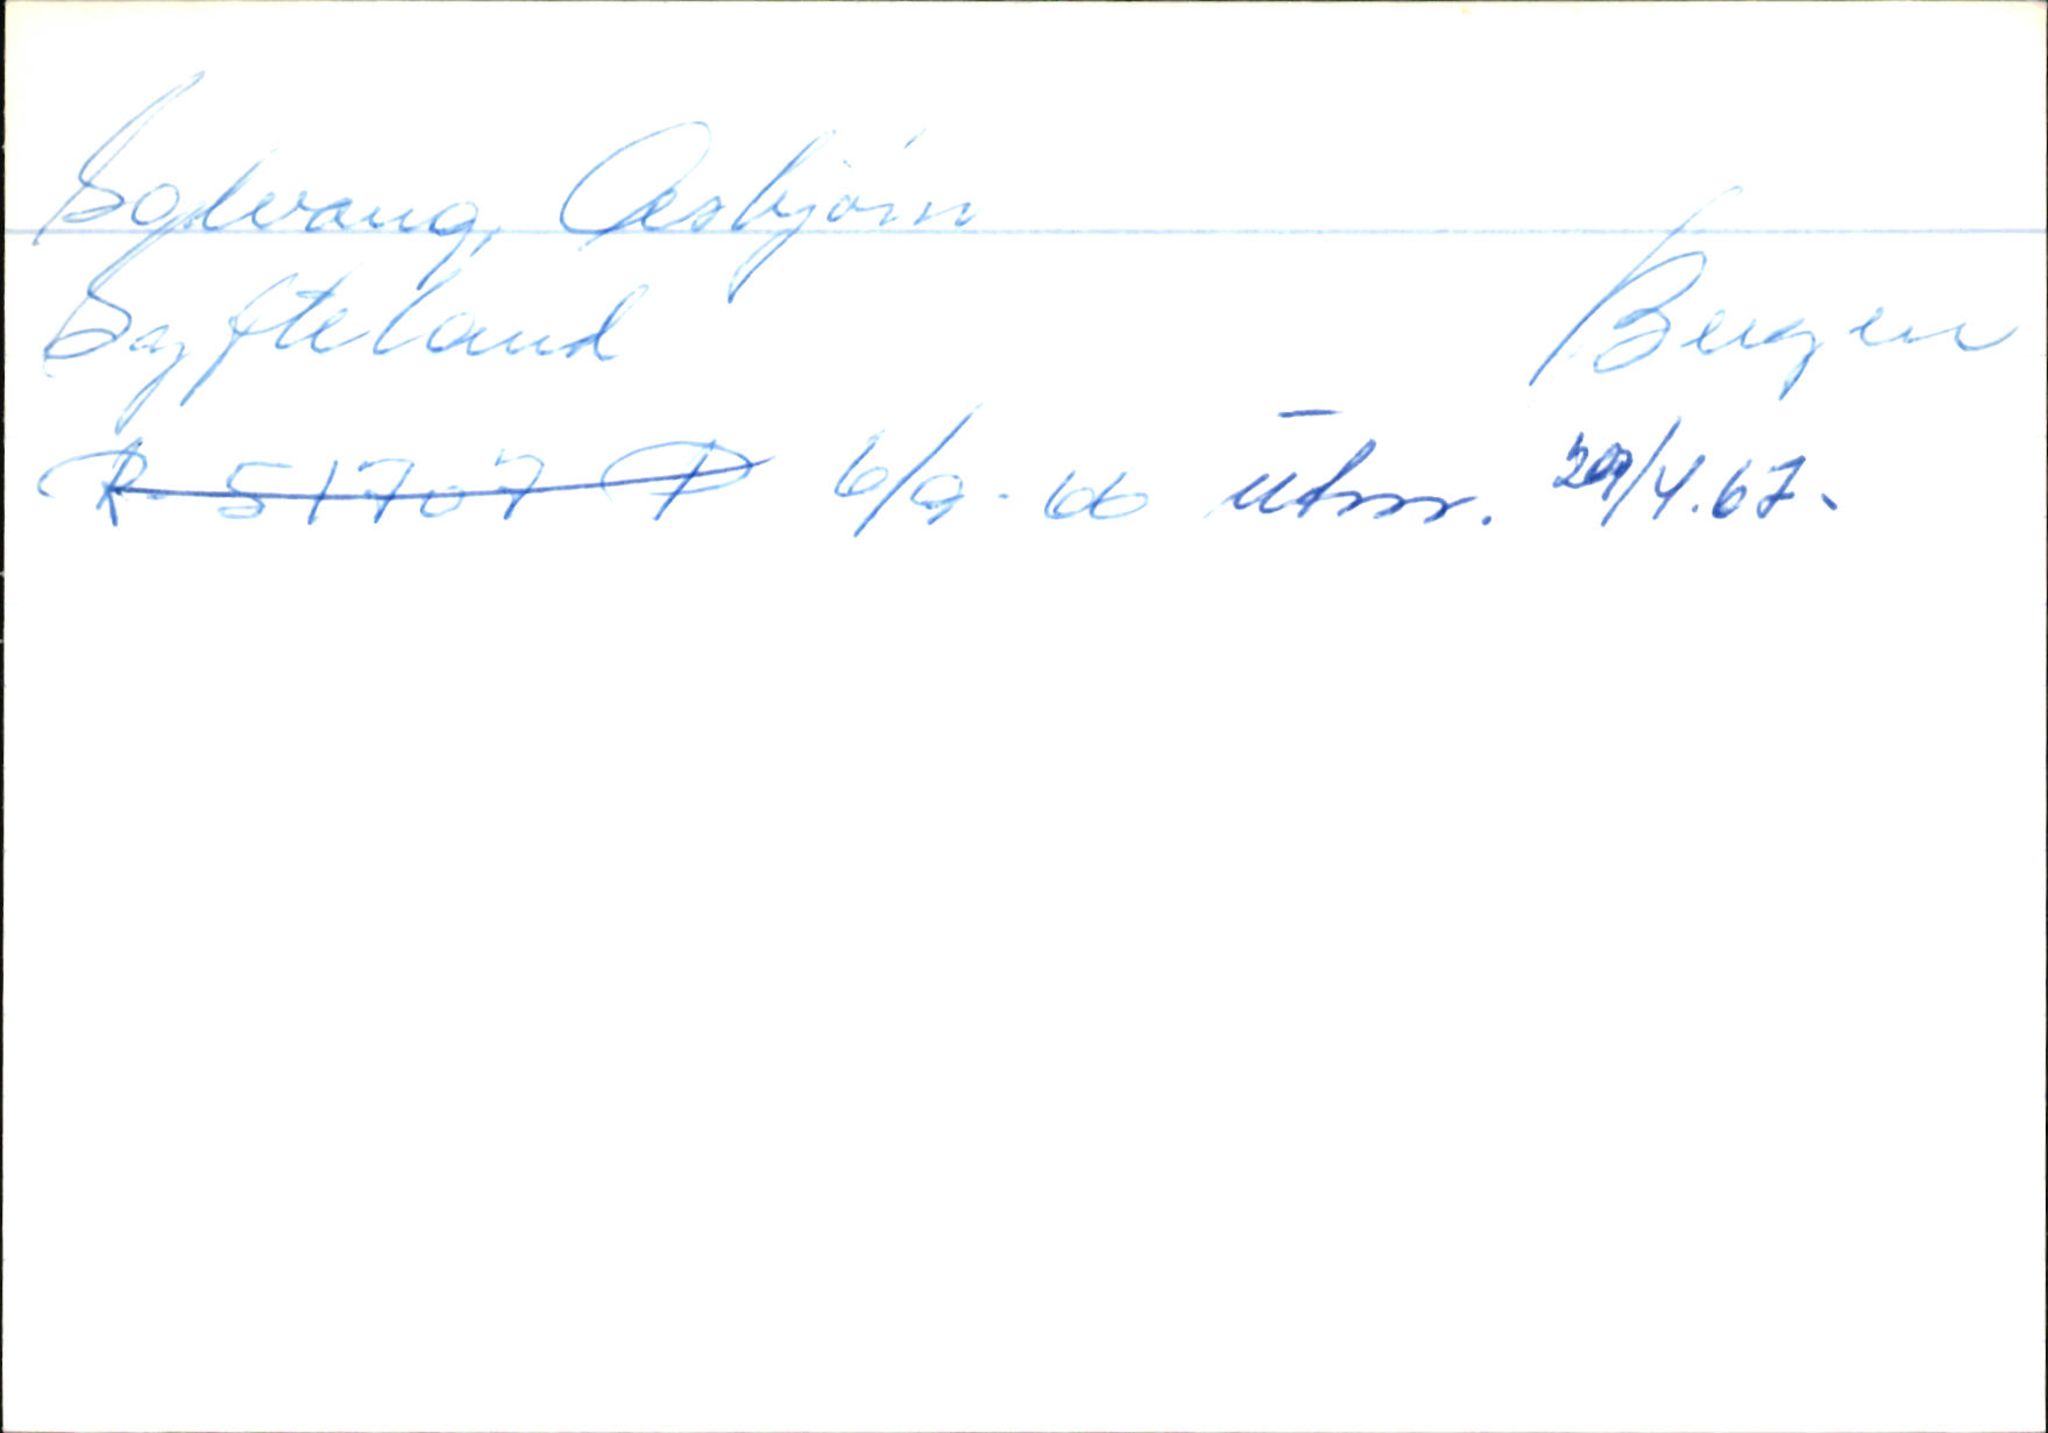 Solvang, Asbjörn
Syfteland Bergen
R-51707 P 6/9-66 Utm. 29/4.67.